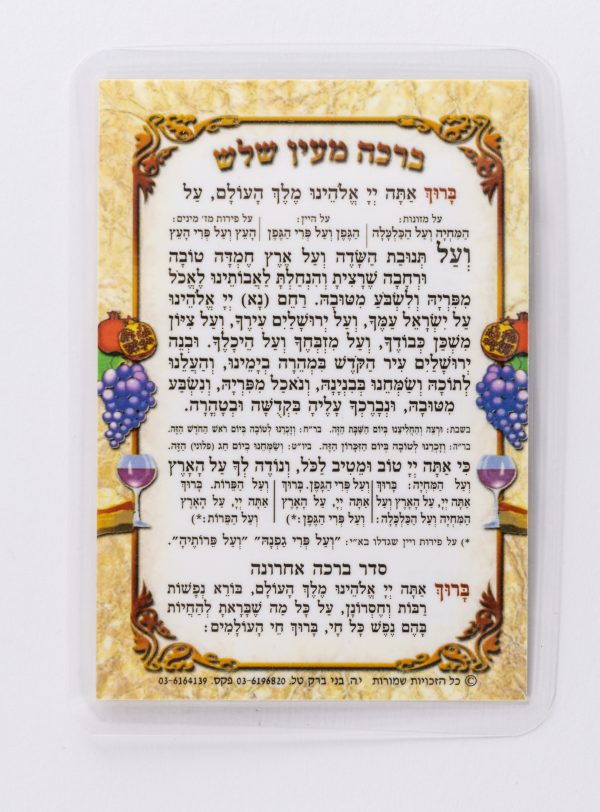 ברכה מעין שלש
בָּרוּךְ אַתָּה יְיָ אֱלֹהֵינוּ מֶלֶךְ הָעוֹלָם, עַל
על מזונות: על היין: על פירות מז׳ מינים:
הַמִּחְיָה וְעַל הַכַּלְכָּלָה הַגֶּפֶן וְעַל פְּרִי הַגֶּפֶן הָעֵץ וְעַל פְּרִי הָעֵץ
וְעַל תְּנוּבַת הַשָּׂדֶה וְעַל אֶרֶץ חֶמְדָּה טוֹבָה
וּרְחָבָה שֶׁרָצִיתָ וְהִנְחַלְתָּ לַאֲבוֹתֵינוּ לֶאֱכֹל
מִפִּרְיָהּ וְלִשְׂבֹּעַ מִטּוּבָהּ. רַחֵם (נָא) יְיָ אֱלֹהֵינוּ
עַל יִשְׂרָאֵל עַמֶּךָ, וְעַל יְרוּשָׁלַיִם עִירֶךָ, וְעַל צִיּוֹן
מִשְׁכַּן כְּבוֹדֶךָ, וְעַל מִזְבְּחֶךָ וְעַל הֵיכָלֶךָ. וּבְנֵה
יְרוּשָׁלַיִם עִיר הַקֹּדֶשׁ בִּמְהֵרָה בְיָמֵינוּ, וְהַעֲלֵנוּ
לְתוֹכָהּ וְשַׂמְּחֵנוּ בְּבִנְיָנָהּ, וְנֹאכַל מִפִּרְיָהּ, וְנִשְׂבַּע
מִטּוּבָהּ, וּנְבָרֶכְךָ עָלֶיהָ בִּקְדֻשָּׁה וּבְטָהֳרָה.
בשבת: וּרְצֵה וְהַחֲלִיצֵנוּ בְּיוֹם הַשַּׁבָּת הַזֶּה. בר״ח: וְזָכְרֵנוּ לְטוֹבָה בְּיוֹם רֹאשׁ הַחֹדֶשׁ הַזֶּה.
בר״ה: וְזָכְרֵנוּ לְטוֹבָה בְּיוֹם הַזִּכָּרוֹן הַזֶּה. ביו״ט: וְשַׂמְּחֵנוּ בְּיוֹם חַג (פלוני) הַזֶּה.
כִּי אַתָּה יְיָ טוֹב וּמֵטִיב לַכֹּל, וְנוֹדֶה לְּךָ עַל הָאָרֶץ
וְעַל הַמִּחְיָה: בָּרוּךְ וְעַל פְּרִי הַגֶּפֶן. בָּרוּךְ וְעַל הַפֵּרוֹת. בָּרוּךְ
אַתָּה יְיָ, עַל הָאָרֶץ וְעַל אַתָּה יְיָ, עַל הָאָרֶץ אַתָּה יְיָ, עַל הָאָרֶץ
הַמִּחְיָה וְעַל הַכַּלְכָּלָה: וְעַל פְּרִי הַגֶּפֶן:*) וְעַל הַפֵּרוֹת:*)
*) על פירות ויין שגדלו בא״י: ״וְעַל פְּרִי גַפְנָהּ״ ״וְעַל פֵּרוֹתֶיהָ״.
סדר ברכה אחרונה
בָּרוּךְ אַתָּה יְיָ אֱלֹהֵינוּ מֶלֶךְ הָעוֹלָם, בּוֹרֵא נְפָשׁוֹת
רַבּוֹת וְחֶסְרוֹנָן, עַל כָּל מַה שֶּׁבָּרָאתָ לְהַחֲיוֹת
בָּהֶם נֶפֶשׁ כָּל חָי, בָּרוּךְ חֵי הָעוֹלָמִים:
© כל הזכויות שמורות י.ה. בני ברק טל. 03-6196820 פקס. 03-6164139